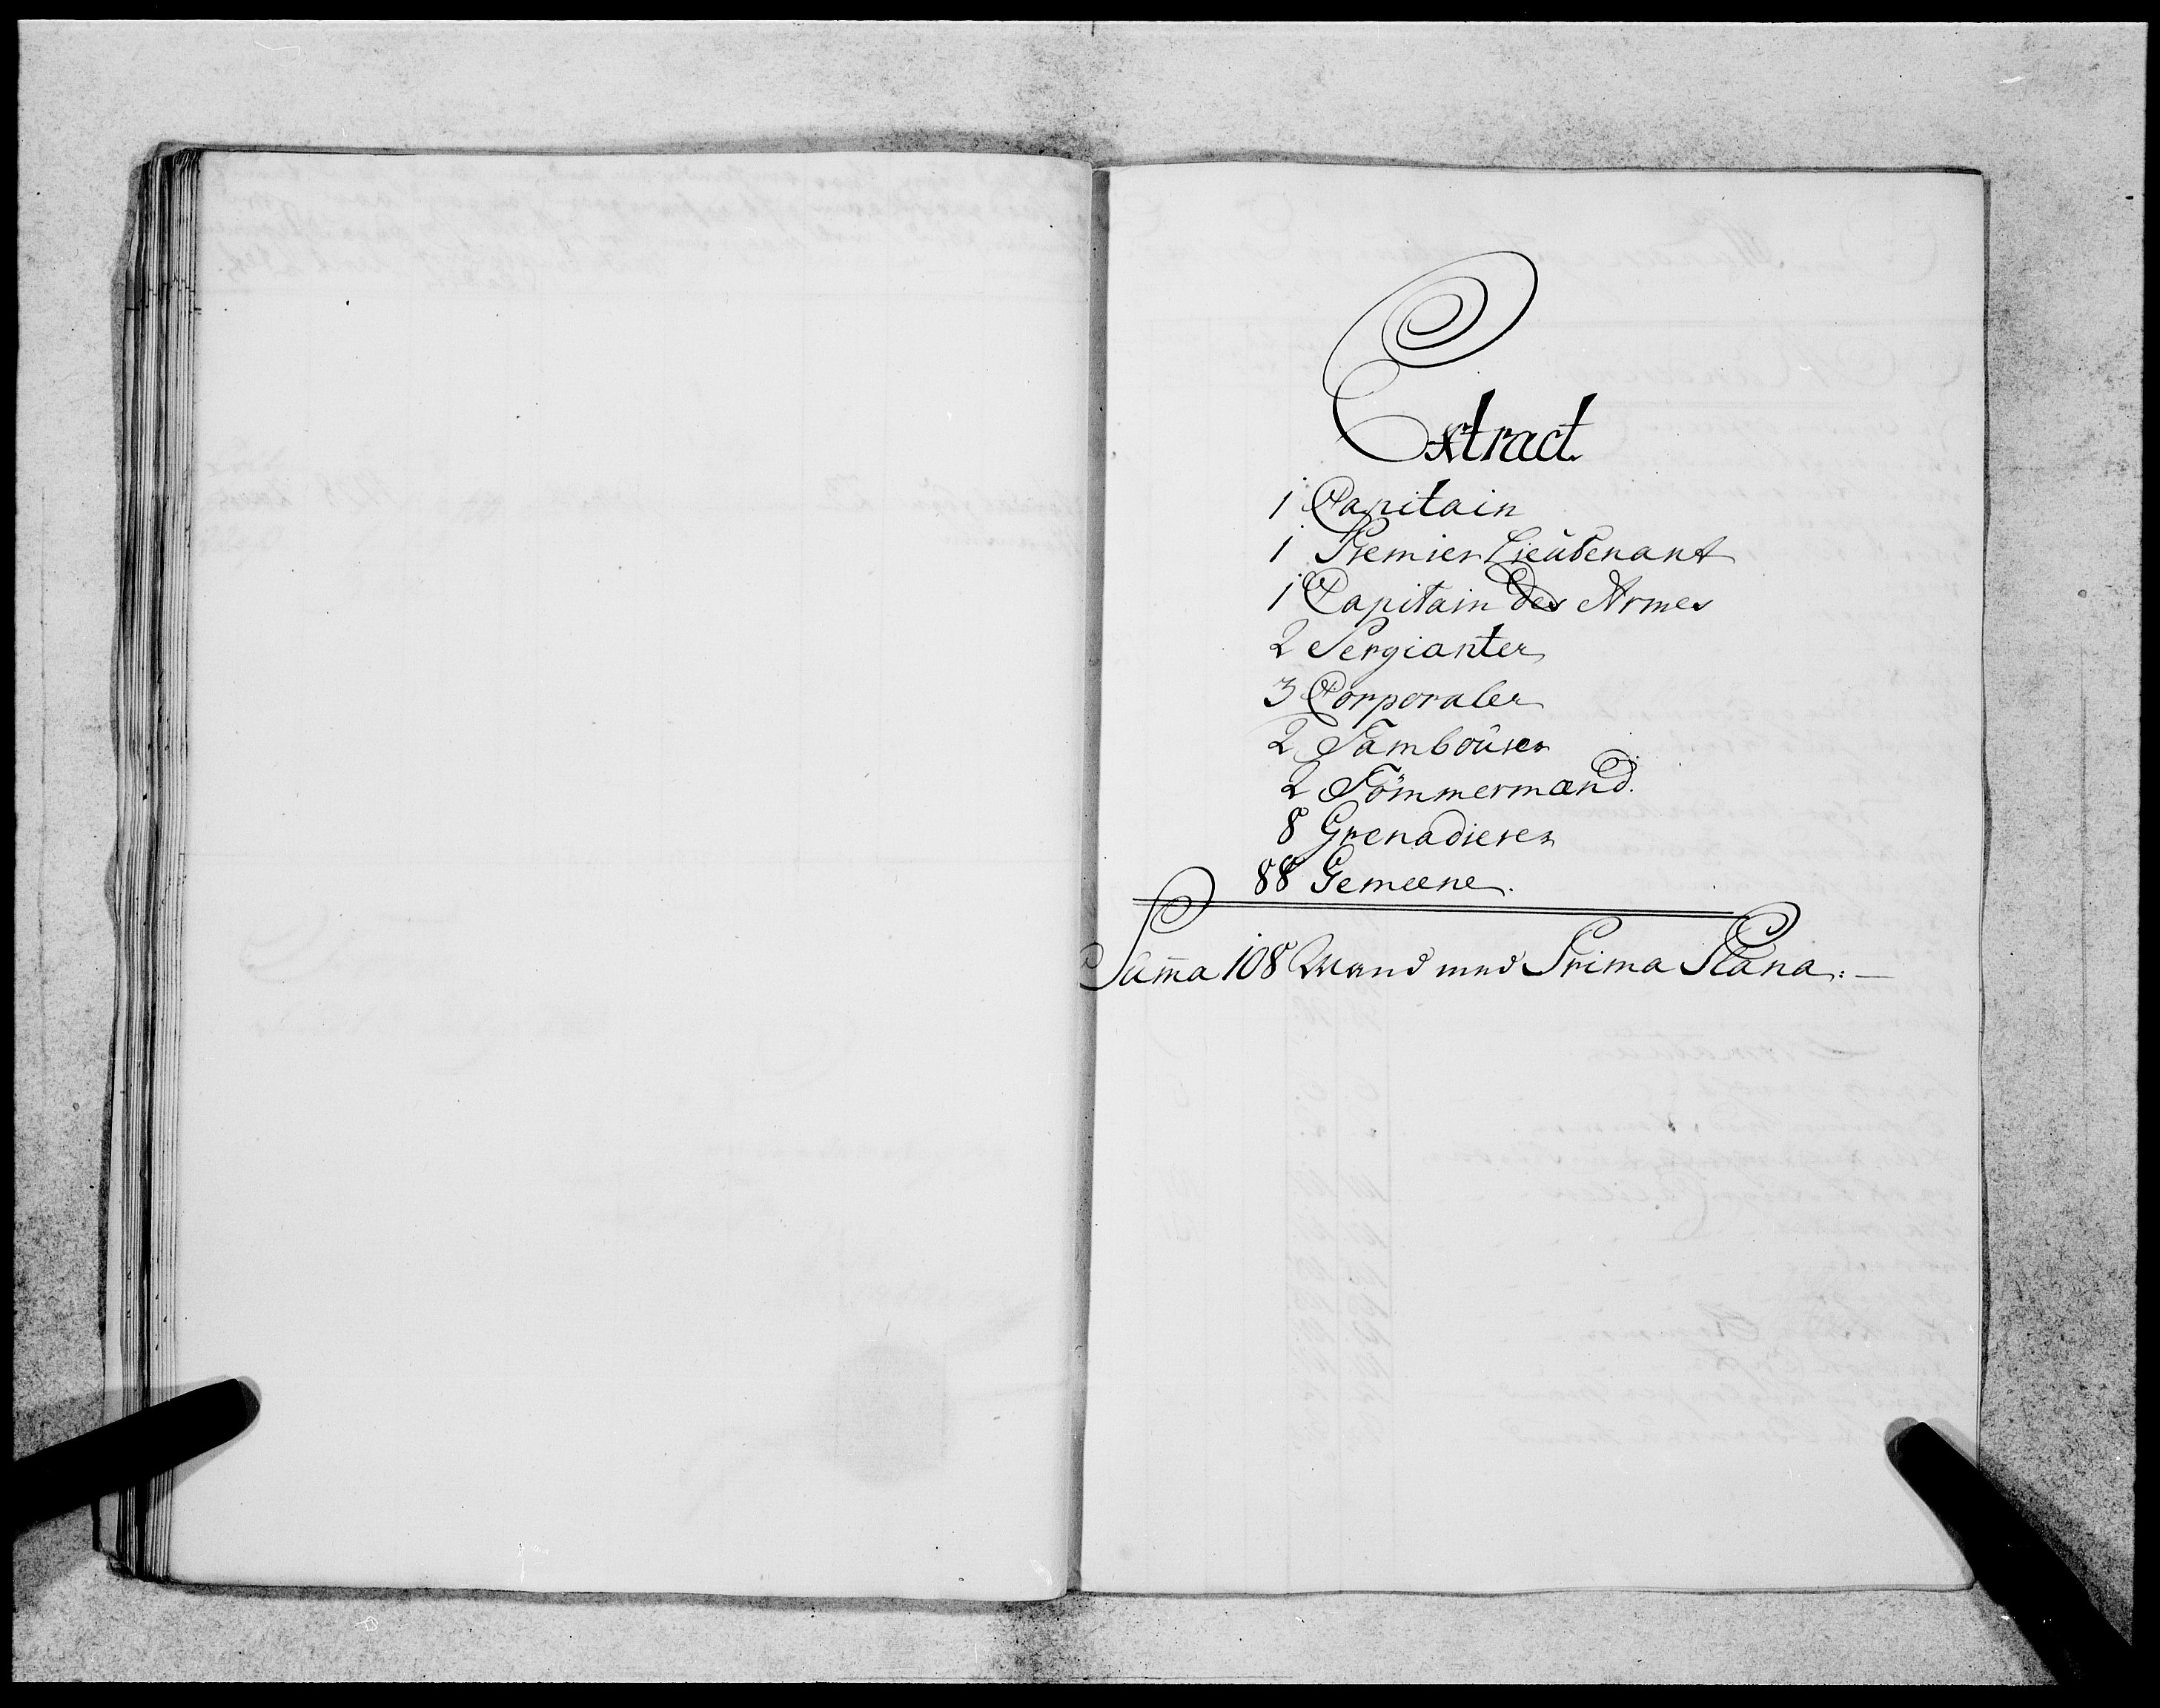 Extract
1 Capitain
1 Premier Lieütenant
1 Capitain des Armes
2 Sergianter
3 Corporaler
2 Tamboürer
2 Tömmermænd.
8 Grenadierer
88 Gemeene.
Sum̅a 108 Mand med Prima Plana: